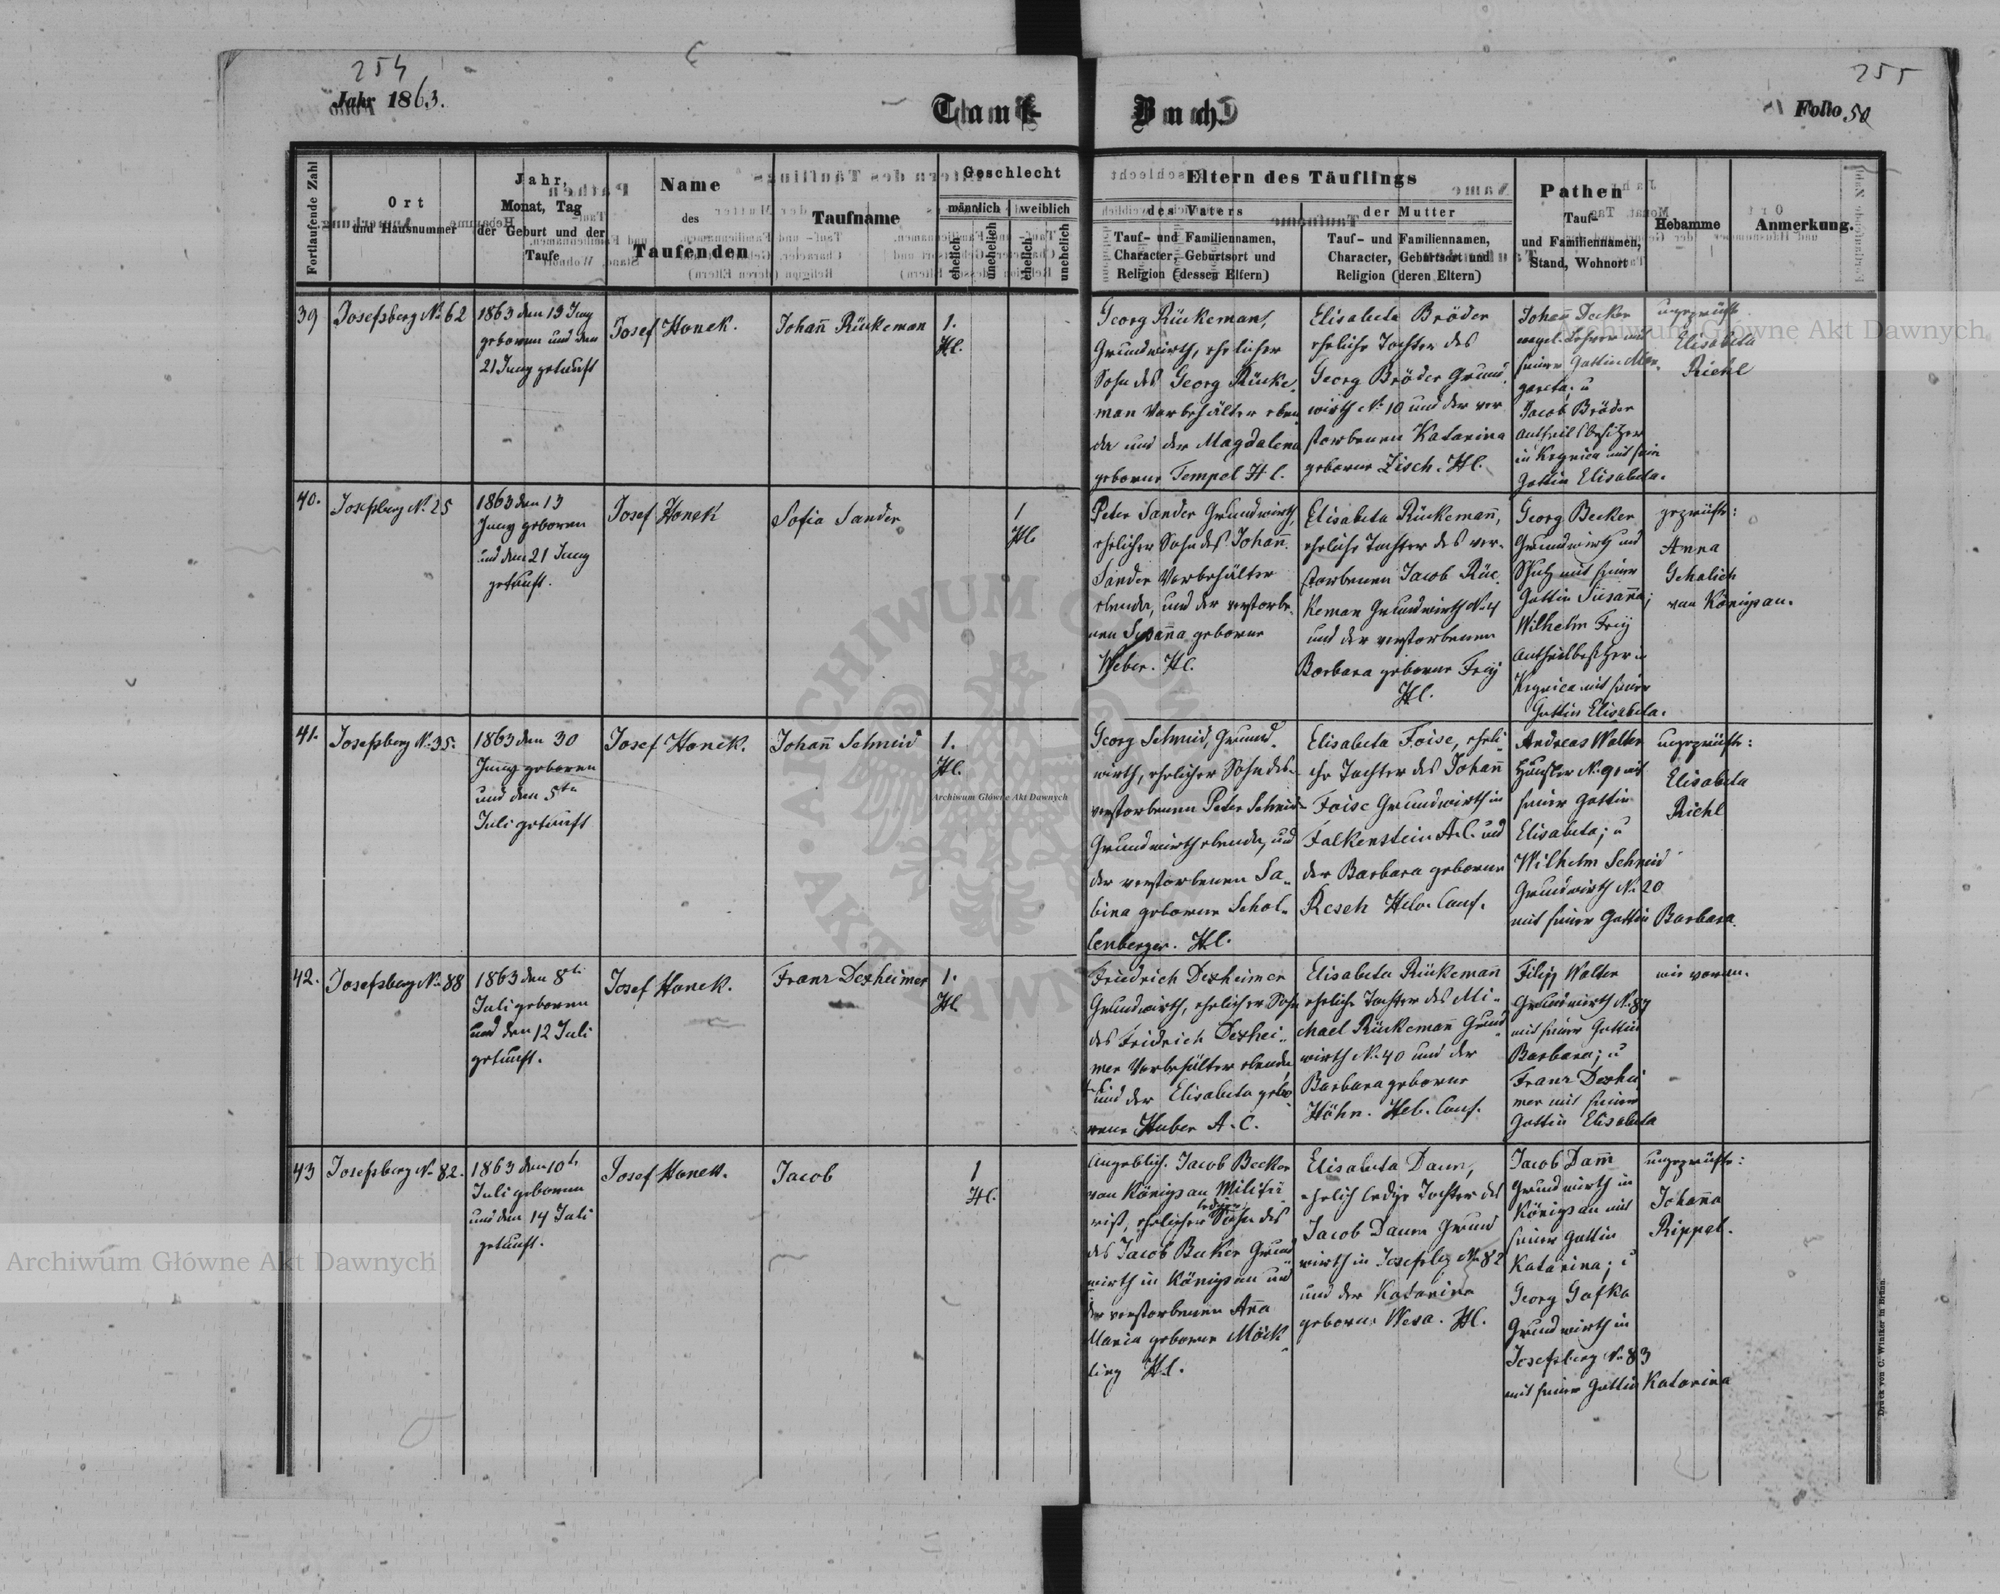 254
Jahr 1863.
Tauf-
Buch.
255
Folio 50
Fortlaufende Zahl
Ort
und Hausnummer
Jahr,
Monat, Tag
der Geburt und der
Taufe
Name
des
Taufenden
Taufname
Geschlecht
männlich
weiblich
ehelich
unehelich
ehelich
unehelich
Eltern des Täuflings
des Vaters
der Mutter
Tauf- und Familiennamen,
Character, Geburtsort und
Religion (dessen Eltern)
Tauf- und Familiennamen,
Character, Geburtsort und
Religion (deren Eltern)
Pathen
Tauf-
und Familiennamen,
Stand, Wohnort
Hebamme
Anmerkung.
39
Josefsberg No 62
1863 den 13 Juny
geboren und den
21 Juny getauft
Josef Honek.
Johann Rückeman
1.
Hl.
Georg Rückeman,
Grundwirth, ehelicher
Sohn des Georg Rücke-
man Vorbehälter eben
da und der Magdalena
geborne Tempel Hl.
Elisabeta Bröder
eheliche Tochter des
Georg Bröder Grund-
wirth No 10 und der ver
storbenen Katarina
geborne Zisch. Hl.
Johan Decker
evgel. Lehrer und
seiner Gattin Mar-
gareta; u
Jacob Bröder
Antheilbesitzer
in Kegnica mit sein
Gattin Elisabeta.
ungeprüfte
Elisabeta
Richl
40.
Josefsberg No. 25
1863 den 13
Juny geboren
und den 21 Juny
getauft.
Josef Honek
Sofia Sander
1
Hl.
Peter Sander Grundwirth,
ehelicher Sohn des Johann
Sander Vorbehälter
ebenda, und der verstorbe-
nen Susanna geborne
Weber. Hl.
Elisabeta Rückemann,
eheliche Tochter des ver-
storbenen Jacob Rüc-
keman Grundwirth No. 4
und der verstorbenen
Barbara geborne Frey
Hl.
Georg Becker
Grundwirth und
mit seiner
Gattin Susanna;
Wilhelm Frey
Antheilbesitzer in
Kegnica mit seiner
Gattin Elisabeta.
geprüfte:
Anna
Gehalich
von Königsau.
41.
Josefsberg No. 35.
1863 den 30
Juny geboren
und den 5ten
Juli getauft
Josef Honek.
Johann Schmid
1.
Hl.
Georg Schmid, Grund-
wirth, ehelicher Sohn des
verstorbenen Peter Schmid
Grundwirth ebenda, und
der verstorbenen Sa-
bina geborne Schol-
lenberger. Hl.
Elisabeta Foise, eheli-
che Tochter des Johann
Foise Grundwirth in
Falkenstein A.C. und
der Barbara geborne
Resch Helv. Conf.
Andreas Walter
Häusler No. 90 mit
seiner Gattin
Elisabeta; u
Wilhelm Schmid
Grundwirth No. 20
mit seiner Gattin Barbara.
ungeprüfte:
Elisabeta
Richl
42.
Josefsberg No. 88
1863 den 8ten
Juli geboren
und den 12 Juli
getauft.
Josef Honek.
Franz Dexheimer
1.
Hl
Friedrich Dexheimer
Grundwirth, ehelicher Sohn
des Fridrich Dexhei-
mer Vorbehälter ebenda
und der Elisabeta gebo-
rene Huber A. C.
Elisabeta Rückemann
eheliche Tochter des Mi-
chael Rückemann Grund-
wirth No. 40 und der
Barbara geborne
Höhn. Helv. Conf.
Filipp Walter
Grundwirth No. 87
mit seiner Gattin
Barbara; u
Franz Dexhei
mer mit seiner
Gattin Elisabeta
wie voran.
43
Josefsberg No. 82.
1863 den 10ten
Juli geboren
und den 14 Juli
getauft.
Josef Honek.
Jacob
1
Hl.
Angeblich. Jacob Becker
von Königsau Militä
rist, ehelicher lediger Sohn des
des Jacob Becker Grund
wirth in Königsau und
der verstorbenen Anna
Maria geborne Möck-
ling Hl.
Elisabeta Daum,
ehelich ledige Tochter des
Jacob Daum Grund
wirth in Josefsbg No. 82
und der Katarina
geborne Wesa. Hl.
Jacob Damm
Grundwirth in
Königsau mit
seiner Gattin
Katarina; u
Georg Gafka
Grundwirth in
Josefsberg No. 83
mit seiner Gattin Katarina
ungeprüfte:
Johanna
Rippel.
Druck von C. Winiker in Brünn.
Archiwum Główne Akt Dawnych
Archiwum Główne Akt Dawnych
Archiwum Główne Akt Dawnych